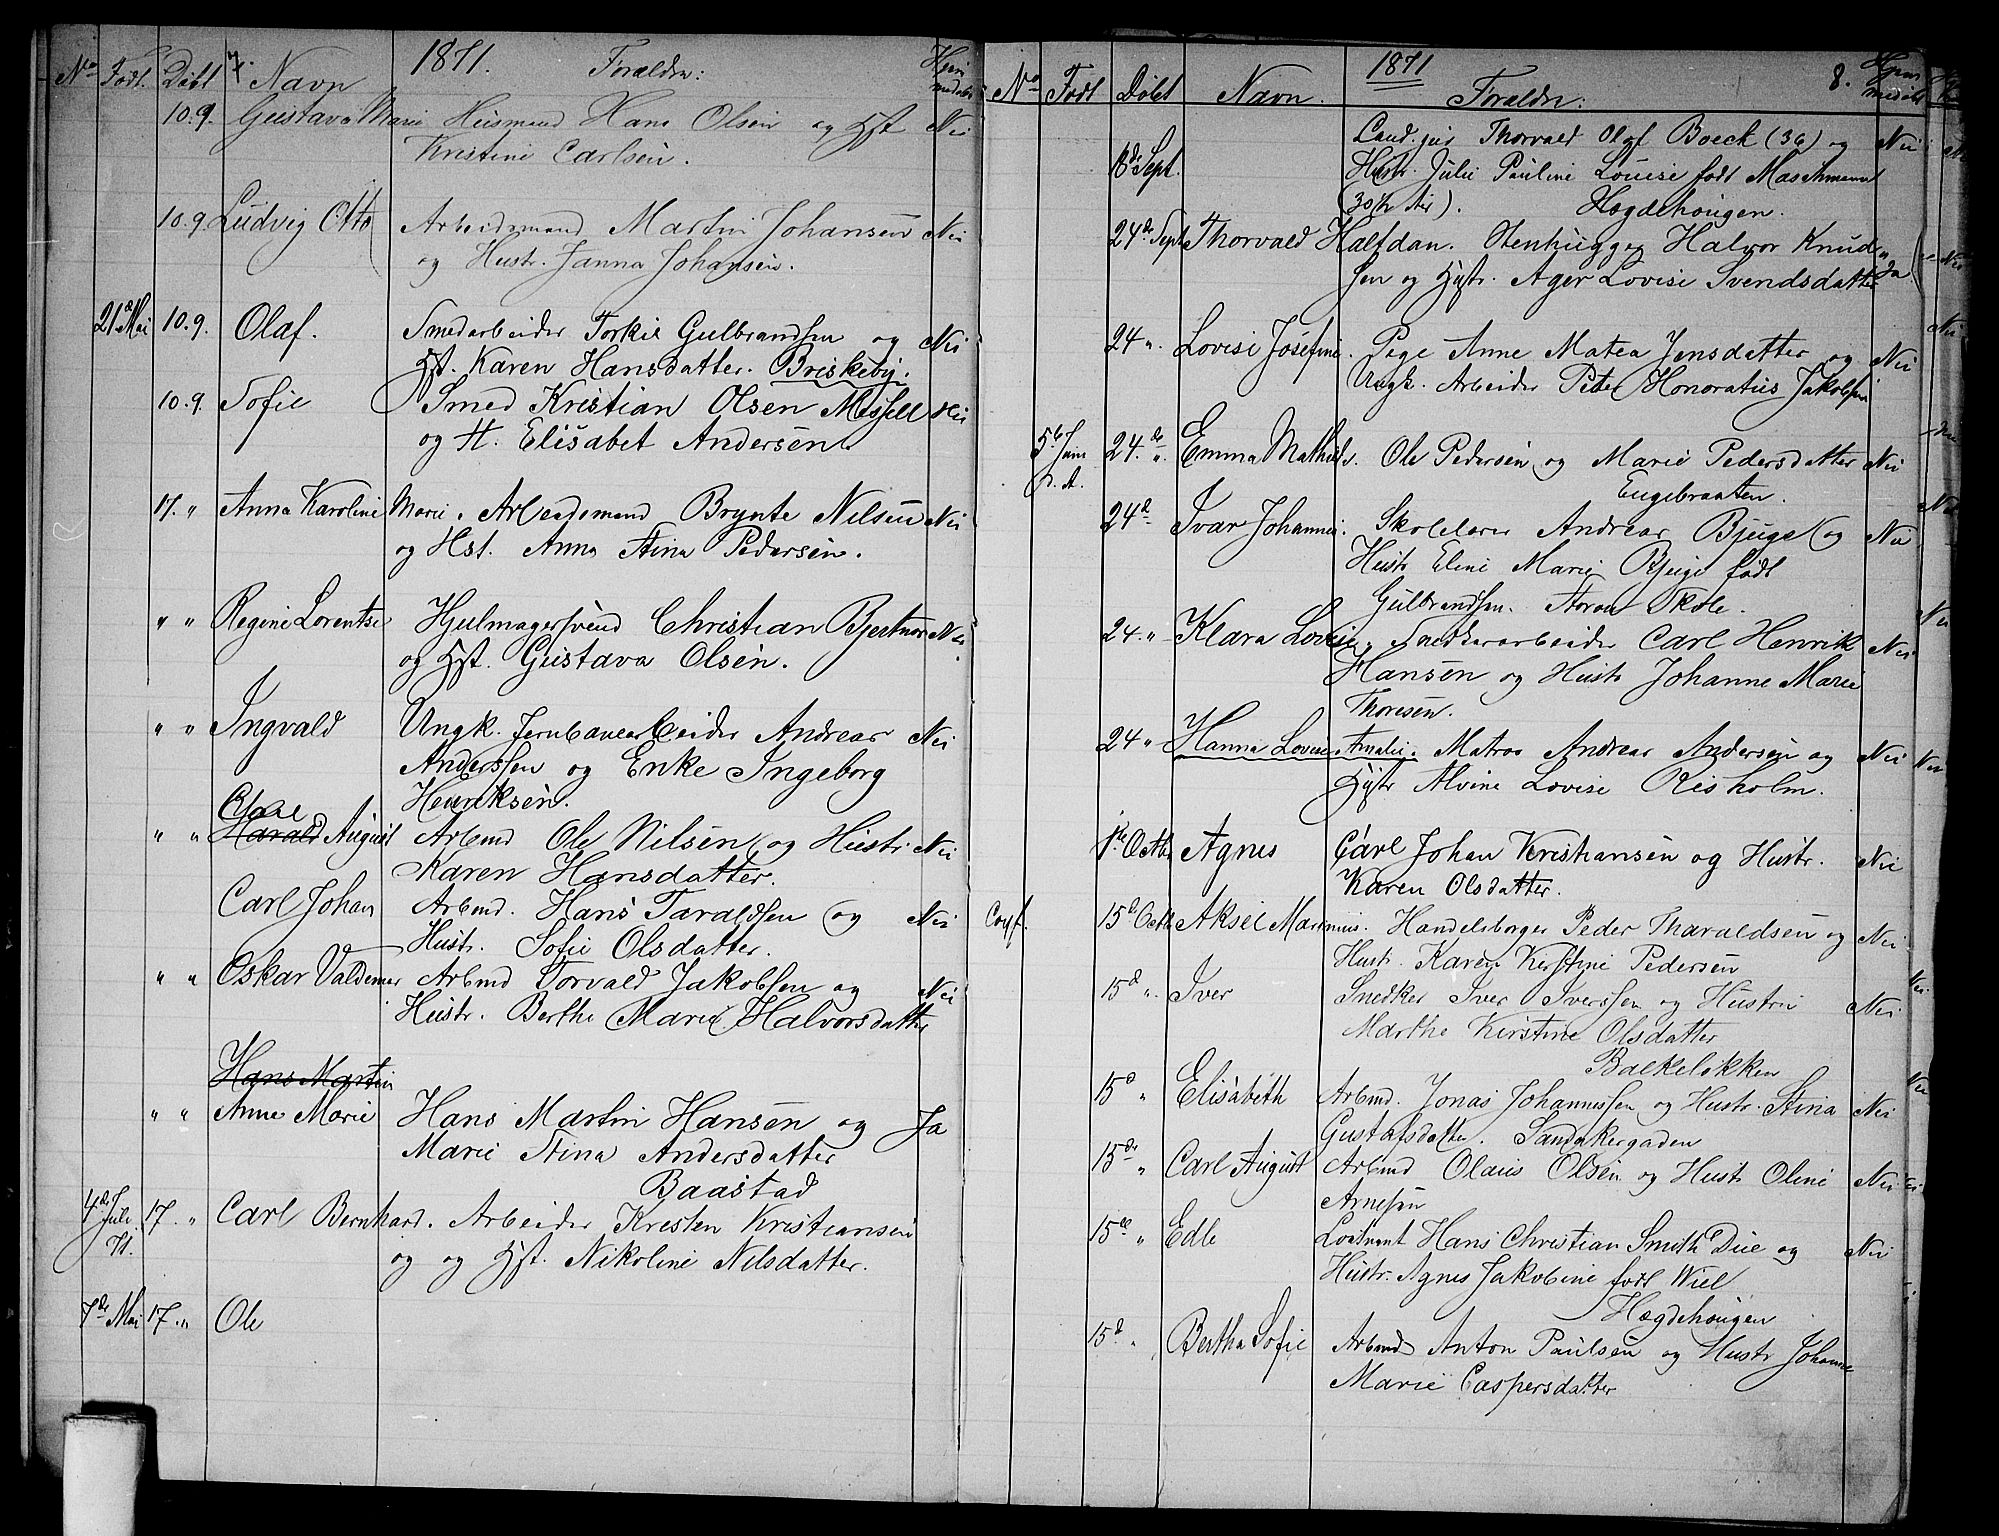 7.
1871.
No Født. Døbt Navn Forældre: Hjemmedøbt
10.9. Gustava Marie Husmand Hans Olsen og Hst. Nei
Kristine Carlsen.
10.9 Ludvig Otto Arbeidsmand Martin Johansen Nei
og Hustr. Janna Johansen.
21de Mai 10.9. Olaf. Smedarbeider Torkil Gulbrandsen og Nei
Hst. Karen Hansdatter. Briskeby.
10.9. Sofie Smed Kristian Olsen Messell Nei
og H. Elisabet Andersen
17. " Anna Karoline Marie. Arbeidsmand Brynte Nilsen Nei
og Hst. Anna Stina Pedersen.
" " Regine Lorentse Hjulmagersvend Christian Bjertnes Nei
og Hst. Gustava Olsen.
" " Ingvald Ungk. Jernbanearbeider Andreas Nei
Anderssen og Enke Ingeborg
Henriksen.
" " Harald August Arbmd Ole Nilsen og Hustr. Nei
Karen Hansdatter.
Carl Johan Arbmd. Hans Taraldsen og Nei
Hustr. Sofie Olsdatter.
" " Oskar Valdemar Arbmd Torvald Jakobsen og Nei
Hustr. Berthe Marie Halvorsdatter
Hans Martin
" " Anne Marie Hans Martin Hansen og Ja
Marie Stina Andersdatter
Baastad
4de Juli 71. 17. " Carl Bernhard. Arbeider Kresten Kristiansen
og og Hst. Nikoline Nilsdatter.
7de Mai 17. " Ole
1871 8.
No Født Døbt Navn. Forældre: Hjemmedøbt
Cand. jur Thorvald Olaf Boeck (36) og Nei
Sept. Hustr. Julie Pauline Louise født Maschmann
(30½ Aar). Hegdehougen.
24de Sept Thorvald Halfdan. Stenhugger Halvor Knud- "
sen og Hustr. Ager Lovise Svendsdatter Ja
24 ". Lovise Josefine. Pige Anne Matea Jensdatter og Nei
Ungk. Arbeider Peter Honoratius Jakobsen
5te Juni d. A. 24de ". Emma Mathilde. Ole Pedersen og Marie Pedersdatter Nei
Engebraaten.
24de Ivar Johannes. Skolelærer Andreas Bjuge og Nei
Hustr Eline Marie Bjuge født
Gulbrandsen. Skole.
24. " Klara Lovise. Snedkerarbeider Carl Henrik Nei
Hansen og Hustr Johanne Marie
Thoresen.
24 " Hanna Lovise Amalie. Matros Andreas Andersen og Nei
Hustr Alvine Lovise Risholm.
1te Octbr Agnes Carl Johan Kristiansen og Hustr. Nei
Karen Olsdatter.
Conf. 15de Octb Aksel Marinius. Handelsborger Peder Tharaldsen og Nei
Hustr. Karen Kerstine Pedersen
15d ". Iver Snedker Iver Iverssen og Hustru Nei
Marthe Kirstine Olsdatter
Bakkeløkken
15d " Elisabeth Arbmd. Jonas Johannessen og Hustr. Stina Nei
Gustafsdatter. Sandakergaden
15de " Carl August Arbmd Olaus Olsen og Hustr Oline Nei
Arnesen
15de " Edle Løitnant Hans Christian Smith Due og Nei
Hustr. Agnes Jakobine født Wiel
Hegdehougen
15d " Bertha Sofie Arbmd Anton Paulsen og Hustr Johanne
Marie Caspersdatter